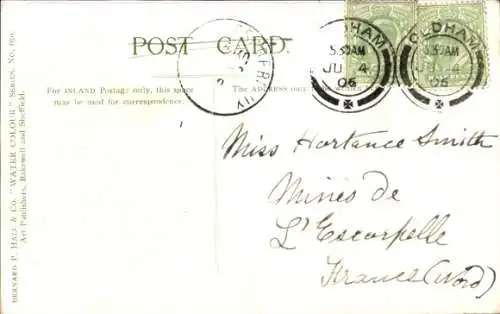 POST CARD.
OLDHAM
5.30AM
JU 4
06
OLDHAM
5.30AM
06
For INLAND Postage only, this space
may be used for correspondence.
The ADDRESS only
Miss Hortance Smith
Mines de
L'Escarpelle
France (Nord)
BERNARD P. HALL & Co. "WATER COLOUR" SERIES, No.
Art Publishers, Bakewell and Sheffield.